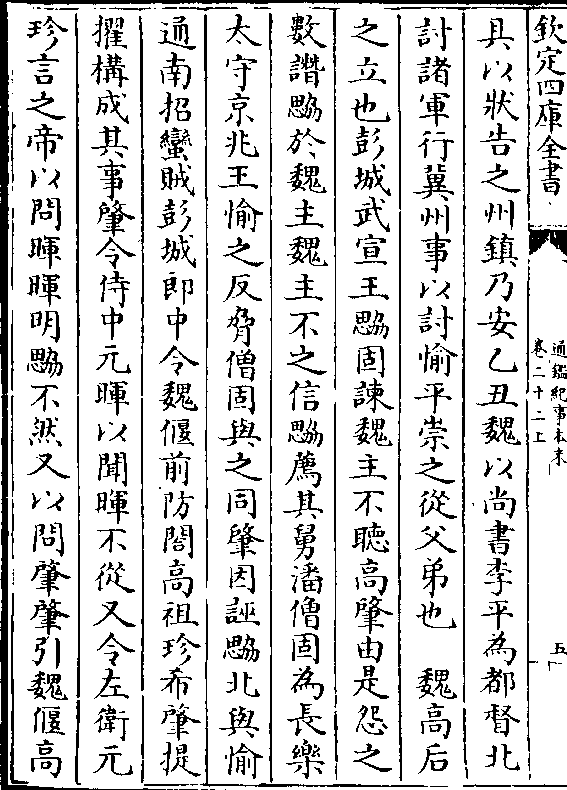 欽定四庫全書
通鑑紀事本末
卷二十二上
五
具以狀告之州鎮乃安乙丑魏以尚書李平為都督北
討諸軍行冀州事以討愉平崇之從父弟也　魏高后
之立也彭城武宣王勰固諫魏主不聽高肇由是怨之
數譖勰於魏主魏主不之信勰薦其舅潘僧固為長樂
太守京兆王愉之反脅僧固與之同肇因誣勰北與愉
通南招蠻賊彭城郎中令魏偃前防閤高祖珍希肇提
擢構成其事肇令侍中元暉以聞暉不從又令左衛元
珍言之帝以問暉暉明勰不然又以問肇肇引魏偃高